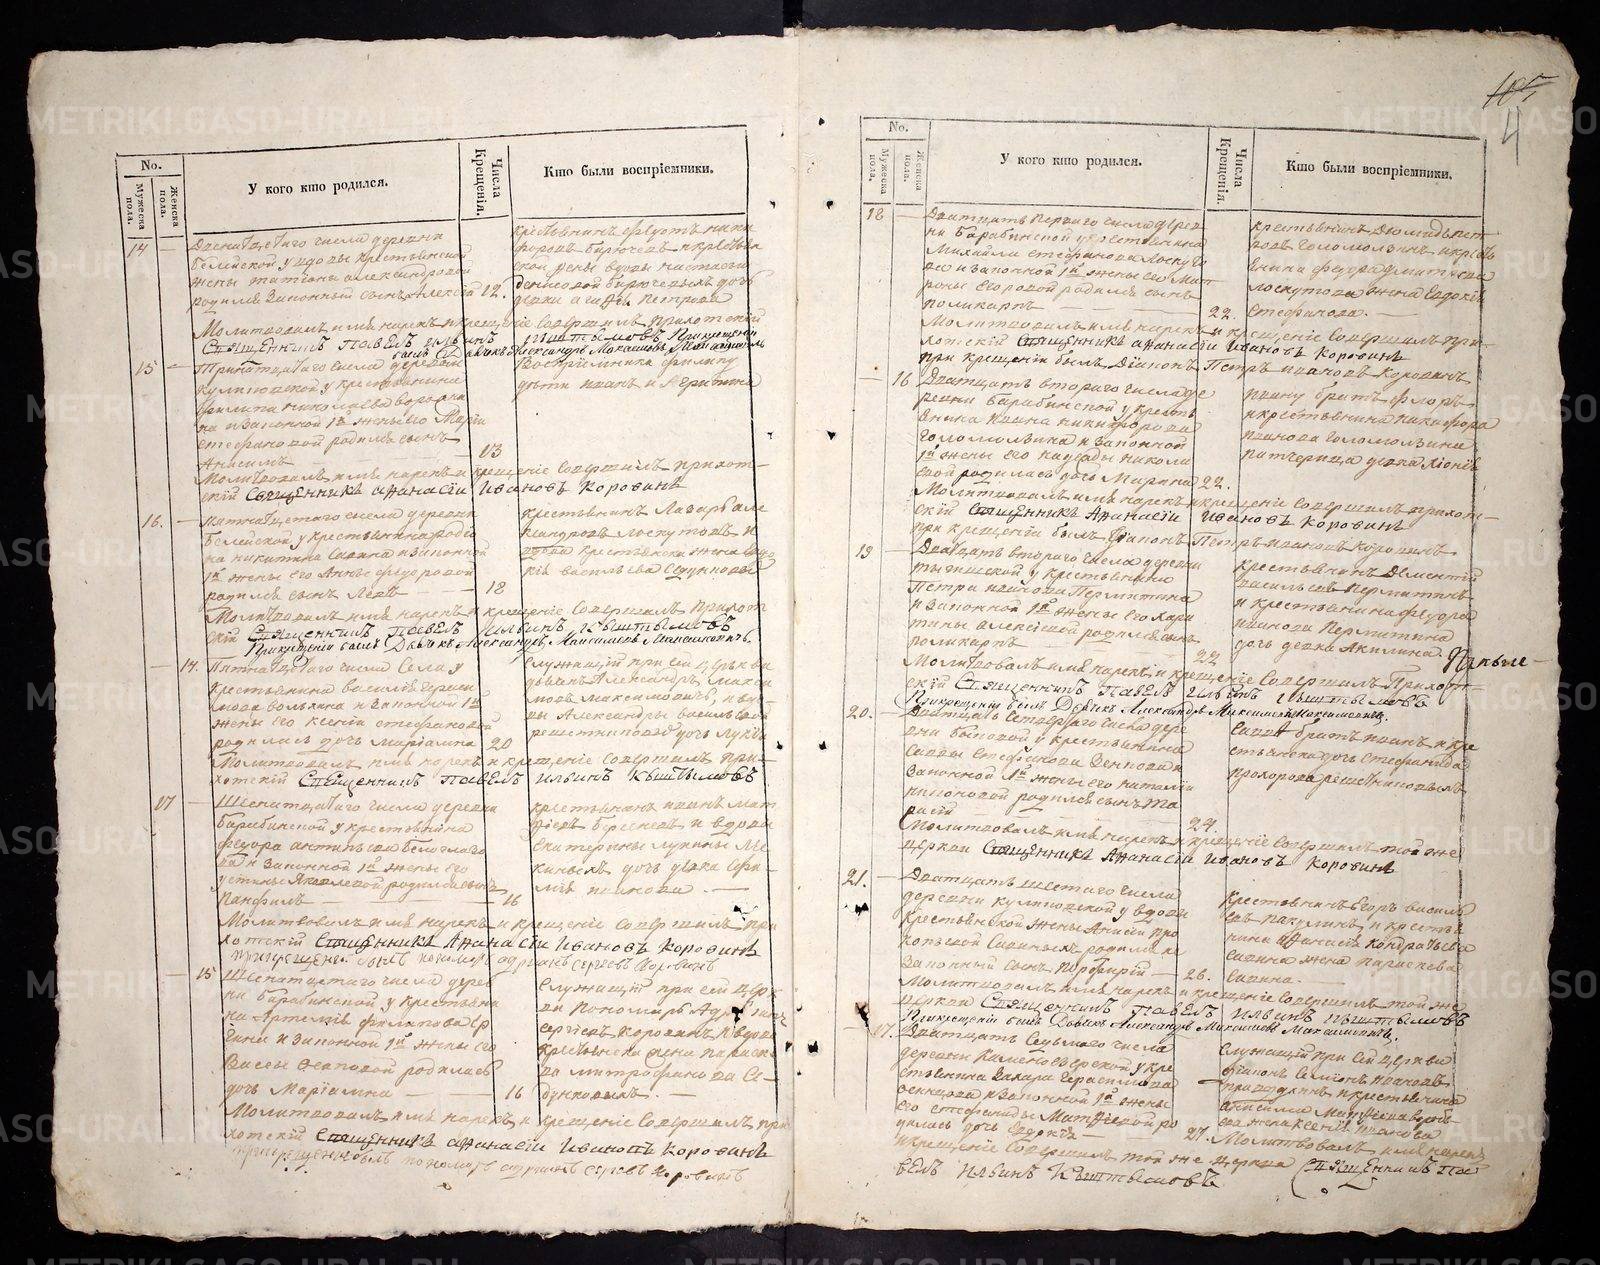 105
4
No.
Мужеска пола.
Женска пола.
У кого кто родился.
Числа Крещенія.
Кто были воспріемники.
14
Двенатцетаго числа деревни
Белейской у вдовы крестьянской
жены татіаны александровой
родился Законный сынъ Алексей 12.
крестьянинъ федотъ ники
форовъ бирючевъ и крестьян
ской жены вдовы настасьи
денисовой бирючевыхъ дочь
девка агафья петрова
Молитвовалъ имя нарекъ и крещеніе Совершилъ приходскій
Священникъ Павелъ Ильинъ Кыштымовъ Прикрещеніи
былъ Дьячекъ Александръ Максимовъ Максимовичъ
15
Тринатцатаго числа деревни
у крестьянина
филипа николаева
на и законной 1й жены его Маріи
стефановой родился сынъ
Анисимъ
13
Воспріемники филипу
дети иванъ и
Молитвовалъ имя нарекъ и крещеніе Совершилъ приход-
скій Священникъ Афанасіи Ивановъ Коровинъ
16.
пятнатцетаго числа деревни
Белейской у крестьянина родіо
на никитина Савина и законной
1й жены его Анны федоровой
родился сынъ Левъ 18
крестьянинъ Лазарь але
ксандровъ лоскутовъ и
крестьянска жена евдо
кія васильева Седунковы
Молитвовалъ имя нарекъ и крещеніе Совершилъ приход
скій Священникъ Павелъ Ильинъ Кыштымовъ
Прикрещеніи былъ Дьячекъ Александръ Максимовъ Максимовичъ.
14.
Пятнатцатаго числа Села у
крестьянина василія гераси
мова волькина и Законной 1й
жены его ксеніи стефановой
родилась дочь Маріамна 20
служащій при сей церькви
дьячекъ Александръ Макси
мовъ максимовичъ, и вдо
вы Александры васильевой
решетниковой дочь лукія
Молитвовалъ имя нарекъ и крещеніе Совершилъ при-
ходскій Священникъ Павелъ Ильинъ Кыштымовъ
17
Шеснатцатаго числа деревни
барабинской у крестьянина
федора антипьева белоглазо
ва и Законной 1й жены его
устиньи Яковлевой родился сынъ
Панфилъ 16
крестьянинъ иванъ мат
феевъ Бересневъ и вдовы
екатерины лукины Ме
киныхъ дочь девка ефи-
мія иванова. —
Молитвовалъ имя нарекъ и крещеніе Совершилъ при
ходскій Священникъ Афанасіи Ивановъ Коровинъ
прикрещеніи былъ пономарь адріанъ сергеевъ Коровинъ
15
Шеснатцетаго числа дерев
ни барабинской у крестьяни
на Артемія филипова
и Законной 1й жены его
Вассы осиповой родилась
дочь Маріамна 16
Служащій при сей церк
ви пономарь Адріанъ
сергеевъ коровинъ и вдова
крестьянска жена параске
ва митрофанова Се-
дунковыхъ. —
Молитвовалъ имя нарекъ и крещеніе Совершилъ при
ходскій Священникъ Афанасіи Ивановъ Коровинъ
прикрещеніи былъ пономарь адріанъ сергеевъ Коровинъ
No.
Мужеска пола.
Женска пола.
У кого кто родился.
Числа Крещенія.
Кто были воспріемники.
18
Дватцать перваго числа дерев
ни барабинской у крестьянина
Михайла стефанова Лоскуто
ва и законной 1й жены его Мат
роны егоровой родился сынъ
поликарпъ 22.
крестьянинъ
ровъ Голомолзинъ и кресть
енина федора дмитриева
лоскутова жена Евдокія
Стефанова. —
Молитвовалъ имя нарекъ и крещеніе Совершилъ при-
ходскій Священникъ Афанасіи Ивановъ Коровинъ
при крещеніи былъ Діаконъ Петръ ивановъ Коровинъ
16
Дватцать втораго числа де
ревни барабинской у кресть
янина Ивана никифорова
Голомолзина и Законной
1й жены его надежды никола
евой родилась дочь Марина 22.
ивану братъ флоръ
и крестьянина никифора
иванова Голомолзина
патчерица девка
Молитвовалъ имя нарекъ и крещеніе Совершилъ приход-
скій Священникъ Афанасіи Ивановъ Коровинъ
при крещеніи былъ Діаконъ Петръ ивановъ Коровинъ
19
Дватцать втораго числа деревни
у крестьянина
Петра иванова Пермитина
и Законной 1й жены его хари
тины алексіевой родился сынъ
поликарпъ 22
крестьянинъ Дементій
васильевъ Пермитинъ
и крестьянина федора
иванова Пермитина
дочь девка Акилина.
Молитвовалъ имя нарекъ и крещеніе Совершилъ Приход-
скій Священникъ Павелъ Ильинъ Кыштымовъ
Прикрещеніи былъ Дьячекъ Александръ Максимовъ Максимовичъ.
20.
Дватцать Четвертаго числа дере
вни боевой у крестьянина
Саввы Стефанова
Законной 1й жены его наталіи
никоновой родился сынъ Та
расій 24.
Саввы братъ иванъ и кре
стьянска дочь стефанида
прохорова решетниковыхъ
Молитвовалъ имя нарекъ и крещеніе Совершилъ той же
церкви Священникъ Афанасіи Ивановъ Коровинъ
21.
Дватцать шестаго числа
деревни у вдовы
крестьянской жены Анисіи про
копьевой Савиныхъ родился не
законный сынъ Порфирій 26.
Крестьянинъ Егоръ василь
евъ пакулинъ, и кресть
янина Афанасія кондратьева
савина жена параскева
савина. —
Молитвовалъ имя нарекъ и крещеніе Совершилъ той же
церкви Священникъ Павелъ Ильинъ Кыштымовъ
Прикрещеніи былъ Дьячекъ Александръ Максимовъ Максимовичъ.
17.
Дватцать Седьмаго числа
деревни Каменоозерской у кре
стьянина Захара Герасимова
и Законной 1й жены
его стефаниды Матфеевой ро
дилась дочь 27.
Служащій при Сей церкви
діаконъ Семіонъ ивановъ
и крестьянина
анисима
жена ксенія иванова
Молитвовалъ имя нарекъ
и крещеніе Совершилъ той же церкви Священникъ Па
велъ Ильинъ Кыштымовъ